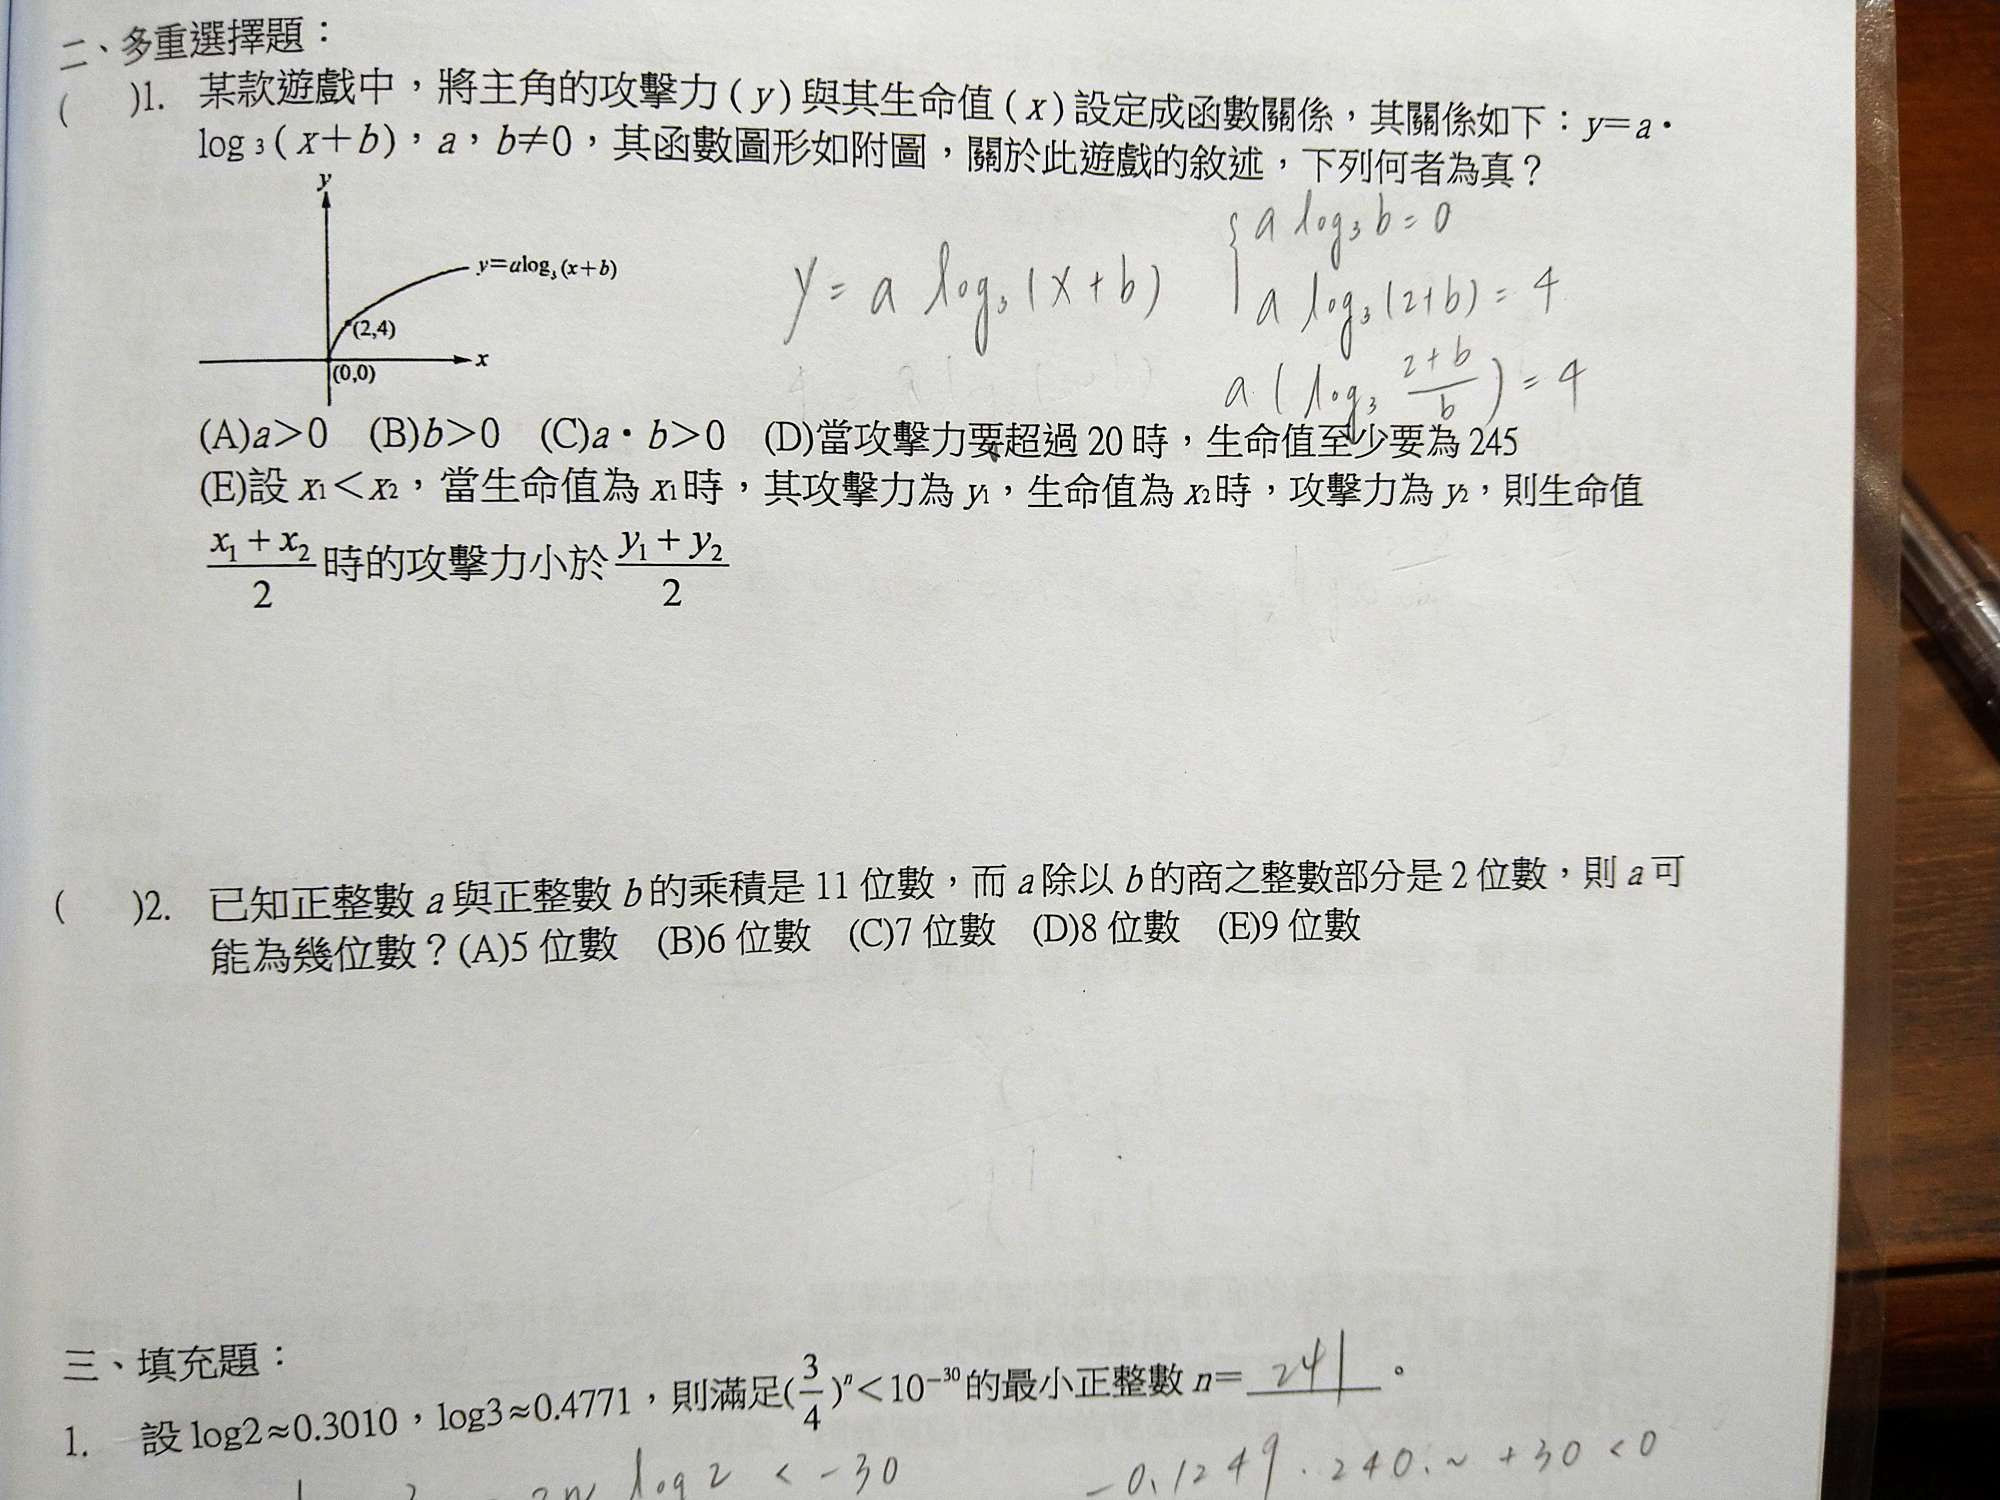 二、多重選擇題：
(　　)1. 某款遊戲中，將主角的攻擊力(y)與其生命值(x)設定成函數關係，其關係如下：y=a·
log₃(x+b)，a，b≠0，其函數圖形如附圖，關於此遊戲的敘述，下列何者為真？
y
y=alog₃(x+b)
(2,4)
x
(0,0)
y = a log₃(x+b)
a log₃ b = 0
a log₃(2+b) = 4
a(log₃ (2+b)/b) = 4
(A)a>0　(B)b>0　(C)a·b>0　(D)當攻擊力要超過20時，生命值至少要為245
(E)設x₁<x₂，當生命值為x₁時，其攻擊力為y₁，生命值為x₂時，攻擊力為y₂，則生命值
(x₁+x₂)/2 時的攻擊力小於 (y₁+y₂)/2
(　　)2. 已知正整數a與正整數b的乘積是11位數，而a除以b的商之整數部分是2位數，則a可
能為幾位數？(A)5位數　(B)6位數　(C)7位數　(D)8位數　(E)9位數
三、填充題：
1. 設log2≈0.3010，log3≈0.4771，則滿足(3/4)ⁿ<10⁻³⁰的最小正整數n=241。
log2 < -30
-0.1249·240.~ +30 <0